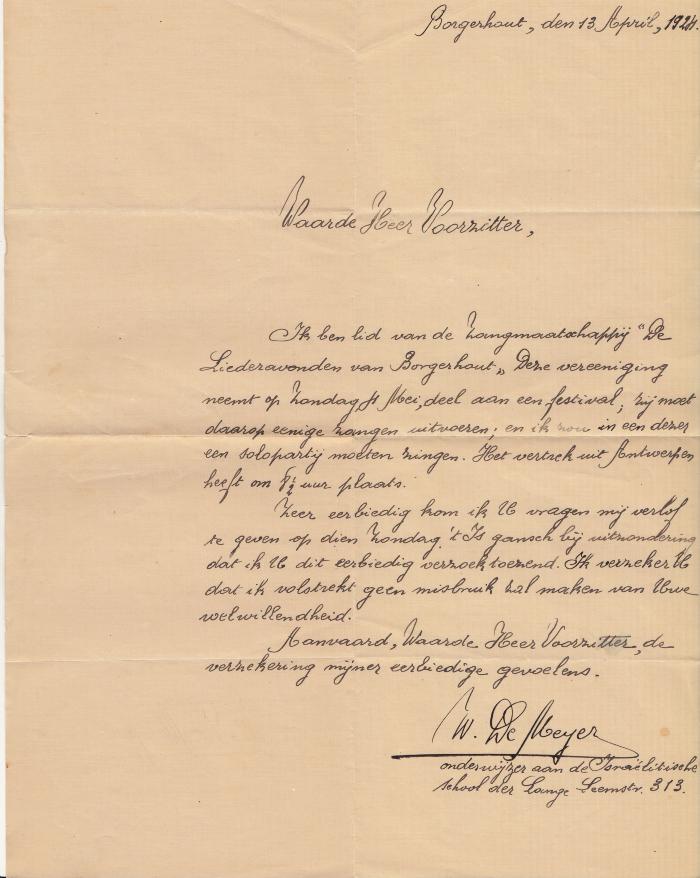 Borgerhout, den 13 April, 1924.
Waarde Heer Voorzitter,
Ik ben lid van de Zangmaatschappij "De
Liederavonden van Borgerhout„ Deze vereeniging
neemt op Zondag Mei, deel aan een festival; zij moet
daarop eenige zangen uitvoeren; en ik zou in een dezer
een solopartij moeten zingen. Het vertrek uit Antwerpen
heeft om ½ uur plaats.
Zeer eerbiedig kom ik U vragen mij verlof
te geven op dien Zondag. 't Is gansch bij uitzondering
dat ik U dit eerbiedig verzoek toezend. Ik verzeker U
dat ik volstrekt geen misbruik zal maken van Uwe
welwillendheid.
Aanvaard, Waarde Heer Voorzitter, de
verzekering mijner eerbiedige gevoelens.
W. De Meyer
onderwijzer aan de Israëlitische
school der Lange Leemstr. 313.